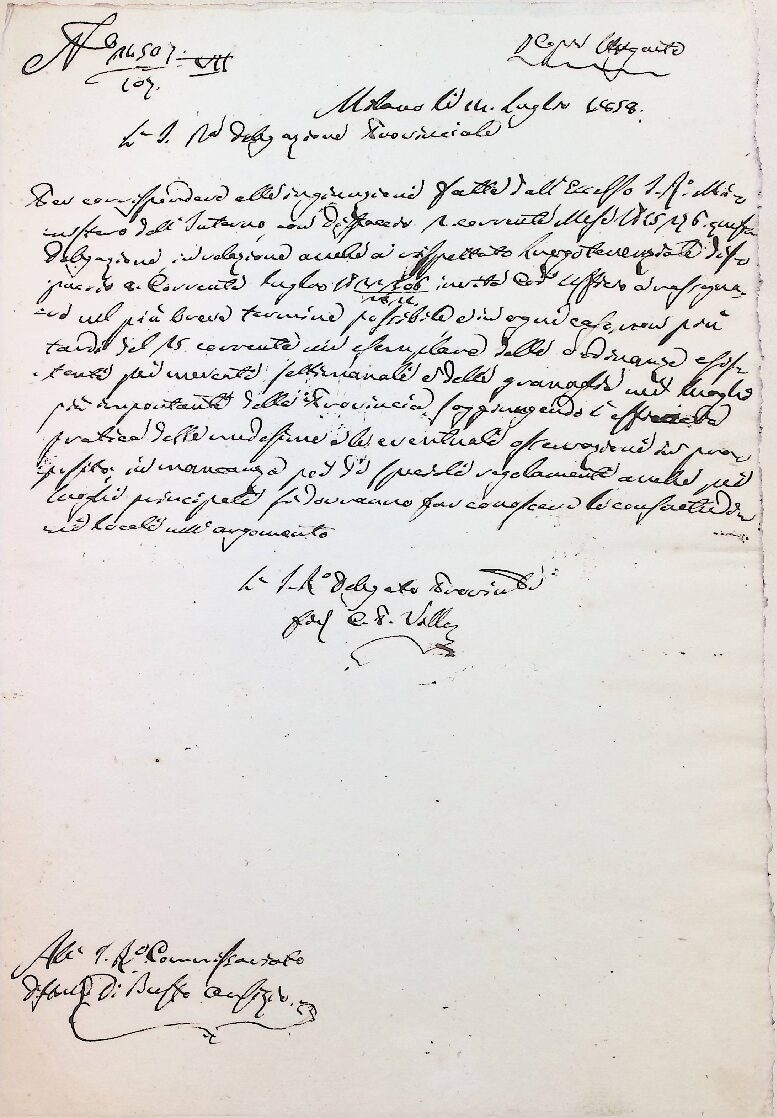 N° 14507 VII
107.
Copia Urgente
Milano li 11. Luglio 1858.
L' I. R. Delegazione Provinciale
Per corrispondere alle ingiunzioni fatte dall' Eccelso I. R. Mini-
stero dell' Interno con dispaccio corrente Mese questa
Delegazione in relazione anche a rispettato Luogotenenziale dis-
paccio corrente Luglio invita Cod° Ufficio a rassegna-
re nel più breve termine possibile e in ogni caso, non più
tardi del 15 corrente un esemplare delle ordinanze esis-
tenti pei mercati settimanali e delle granaglie nei luoghi
più importanti della Provincia, soggiungendo l'
pratica delle medesime e le eventuali osservazioni in pro-
posito, in mancanza poi di speciali regolamenti anche pei
luoghi principali si dovranno far conoscere le consuetudi-
ni locali nell' argomento
L' I. R. Delegato Provinciale
C.
All' I. R. Commissariato
Distrett. Di Busto Arsizio.